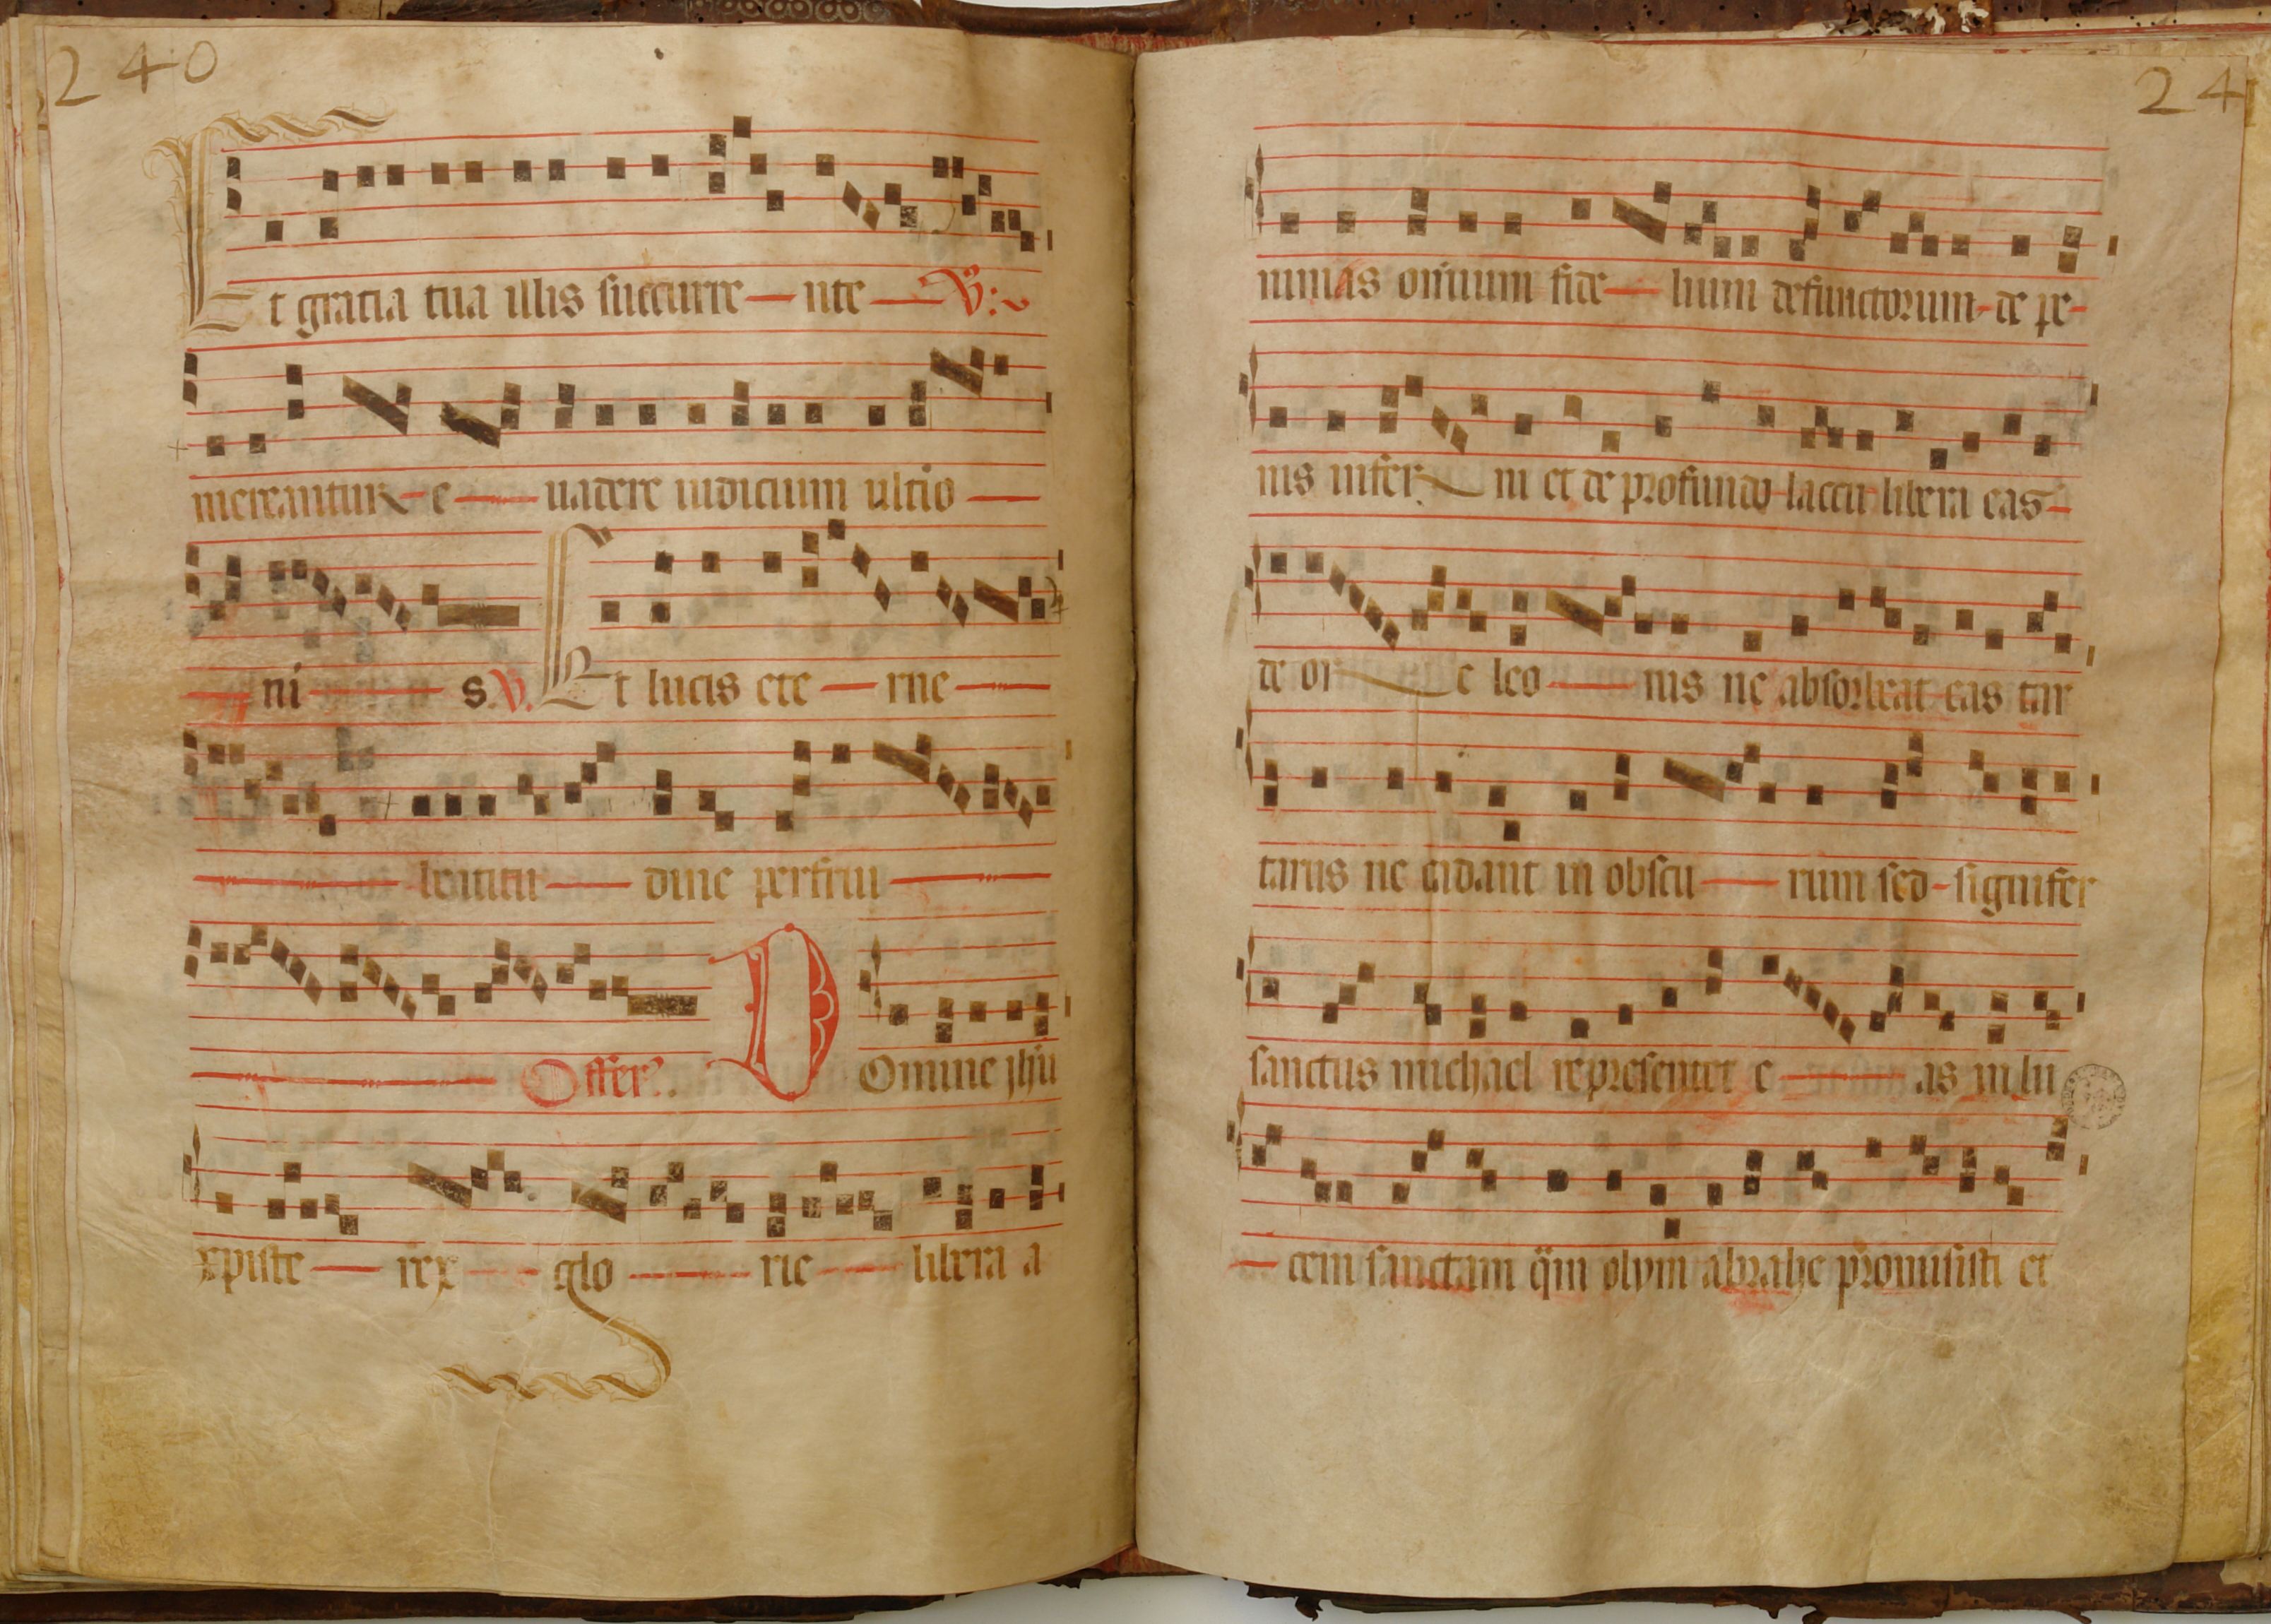 240
Et gratia tua illis succurre nte V:
mereantur e uadere iudicium ultio
ni s. V. Et lucis ete rne
beatitu dine perfrui
Offer. Domine jhu
xpiste rex glo rie libera a
24
nimas omium fide lium defunctorum de pe
nis infer ni et de profundo laccu libera eas
de or e leo nis ne absorbeat eas tar
tarus ne cadant in obscu rum sed signifer
sanctus michael representet e as in lu
cem sanctam qm olym abrahe promisisti et